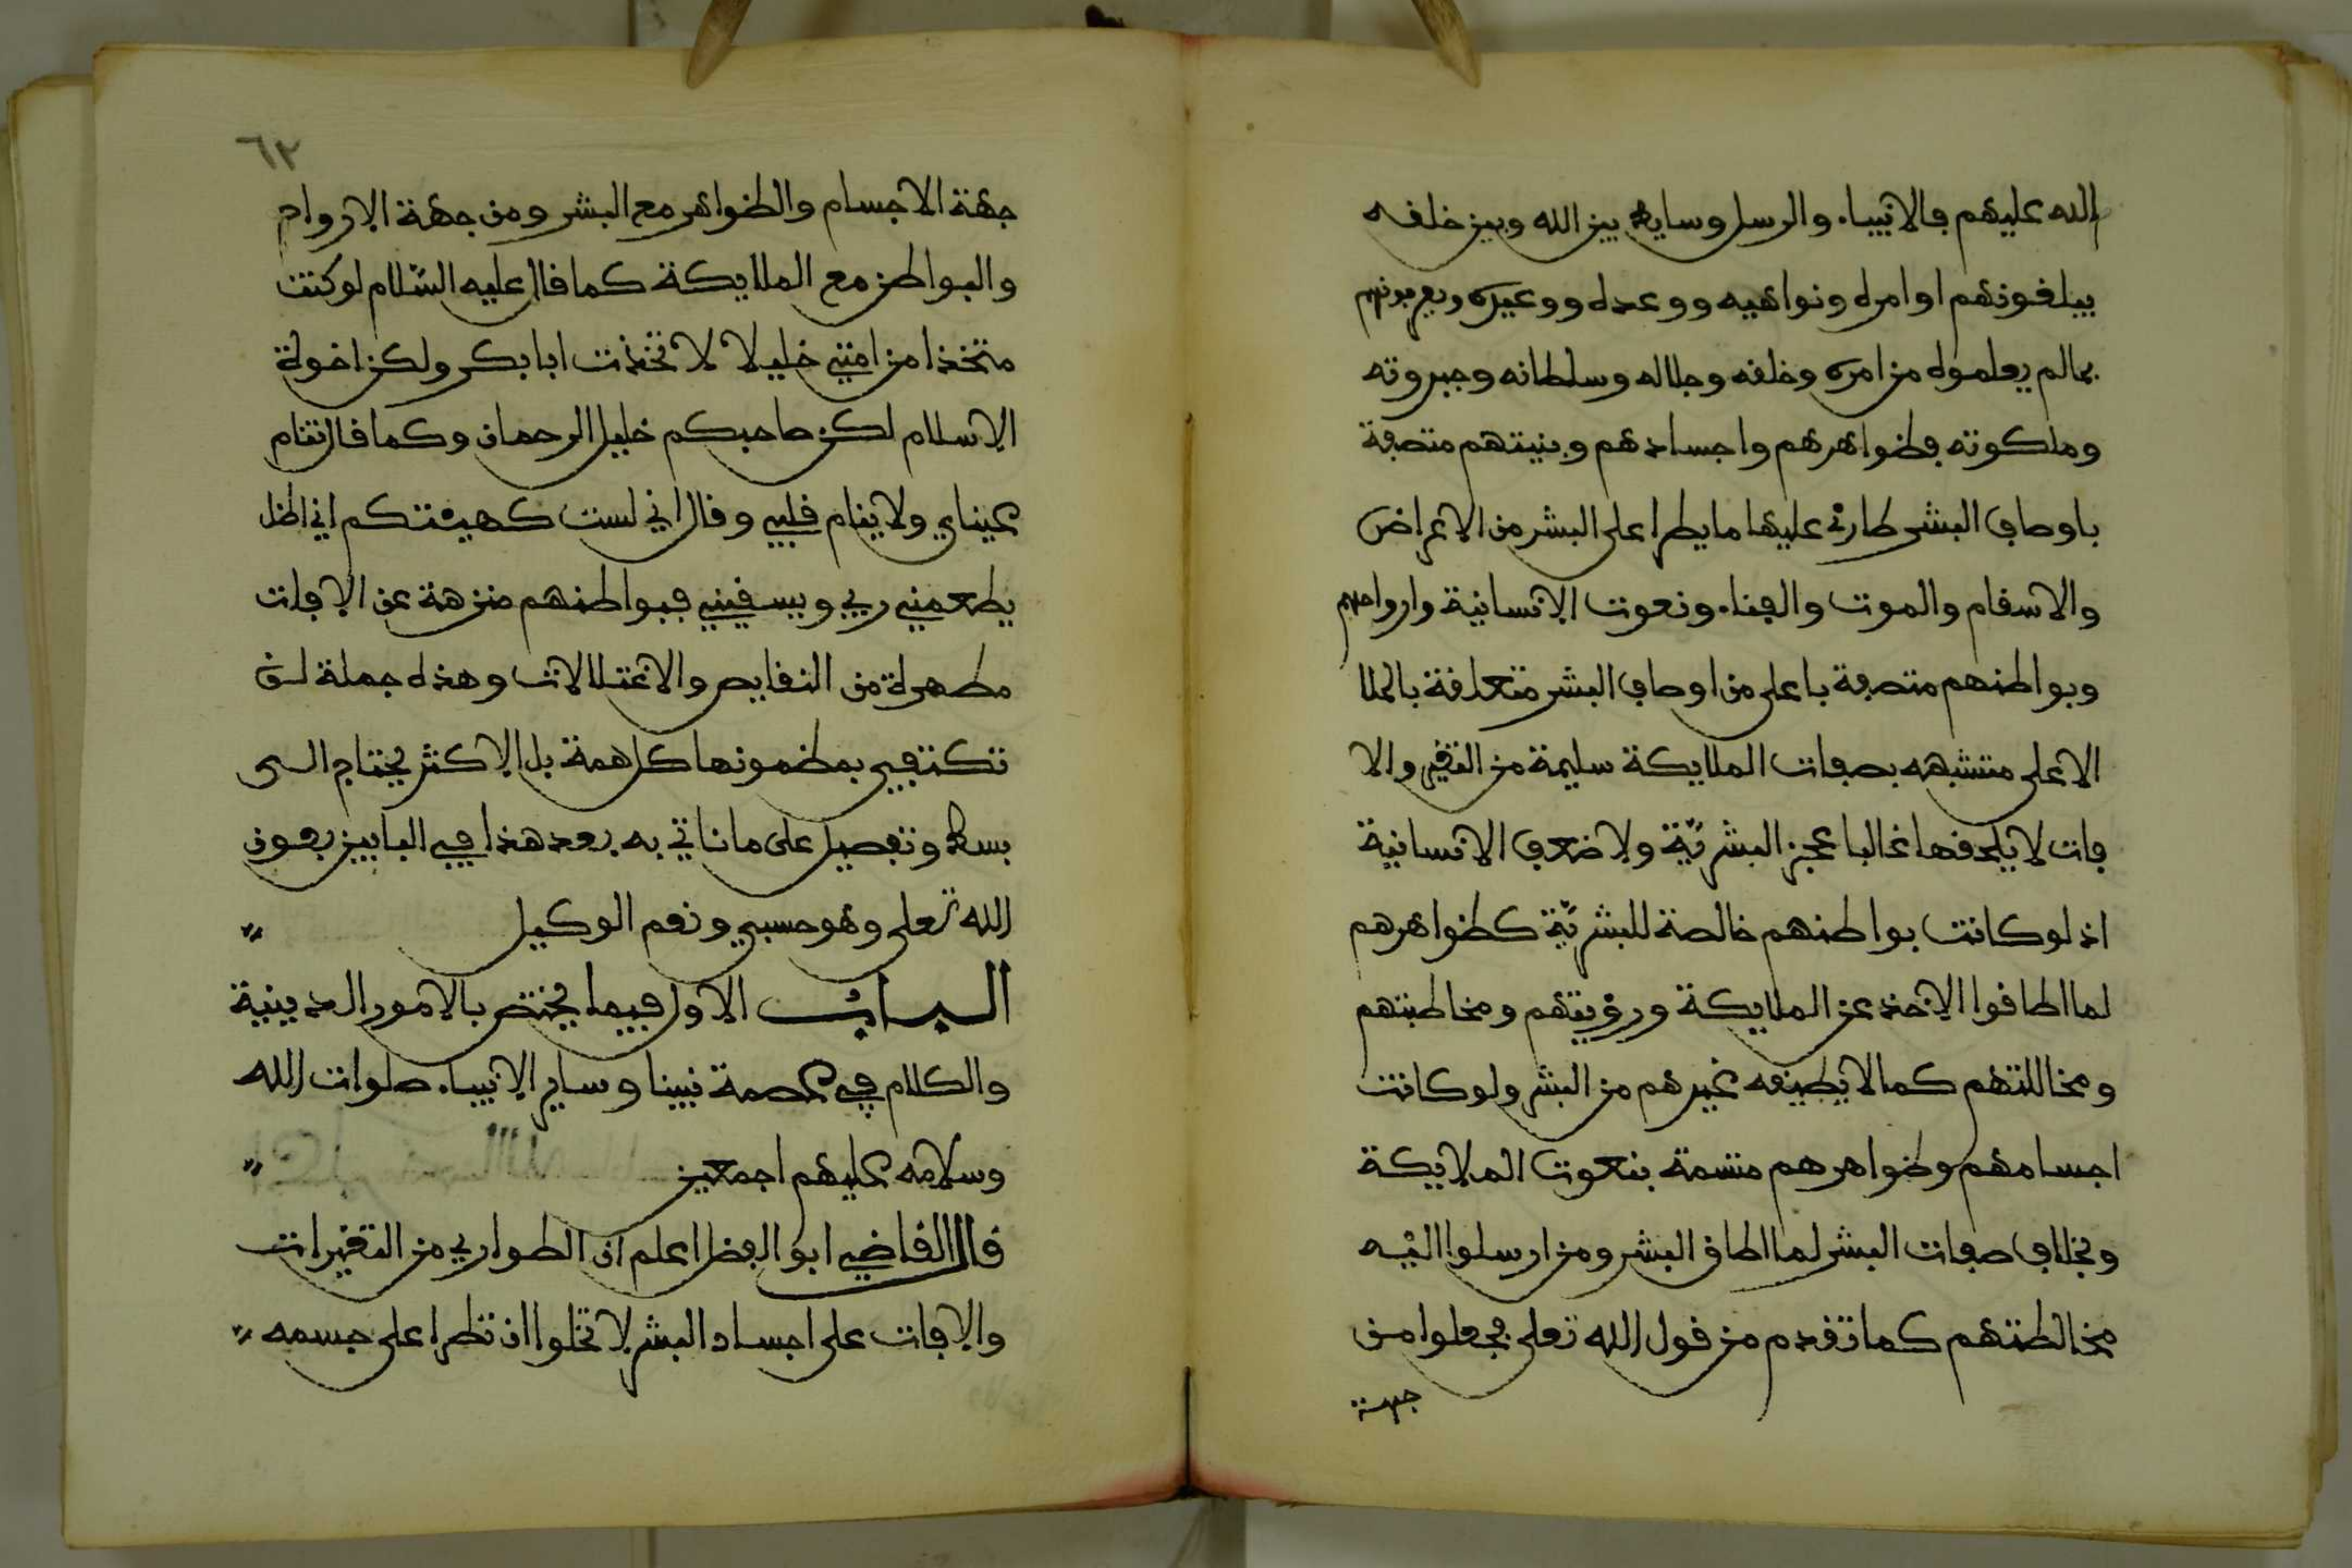 الله عليهم فالانبياء والرسل وسايط بين الله وبين خلقه
يبلغونهم اوامره ونواهيه ووعده ووعيده ويعرفونهم
بمالم يعلموه من امره وخلقه وجلاله وسلطانه وجبروته
وملكوته فظواهرهم واجسادهم وبنيتهم متصفة
باوصاف البشر طارئ عليها ما يطرا على البشر من الاعراض
والاسقام والموت والفناء ونعوت الانسانية وارواحهم
وبواطنهم متصفة باعلى من اوصاف البشر متعلقة بالملا
الاعلى متشبهه بصفات الملايكة سليمة من التغير والا
فات لا يلحقها غالبا عجز البشريّة ولا ضعف الانسانية
اذ لو كانت بواطنهم خالصة للبشريّة كظواهرهم
لما اطاقوا الاخذ عن الملايكة ورؤيتهم ومخاطبتهم
ومخاللتهم كما لا يطيقه غيرهم من البشر ولو كانت
اجسامهم وظواهرهم متسمة بنعوت الملايكة
وبخلاف صفات البشر لما اطاق البشر ومن ارسلوا اليه
مخالطتهم كما تقدم من قول الله تعلى فجعلوا من
جهة
٦٢
جهة الاجسام والظواهر مع البشر ومن جهة الارواح
والبواطن مع الملايكة كما قال عليه السّلام لو كنت
متخذا من امتي خليلا لاتخذت ابا بكر ولكن اخوة
الاسلام لكن صاحبكم خليل الرحمان وكما قال تنام
عيناي ولا ينام قلبي وقال اني لست كهيئتكم اني اظل
يطعمني ربي ويسقيني فبواطنهم منزهة عن الافات
مطهرة من النقايص والاعتلالات وهذه جملة لن
تكتفي بمظمونها كل همة بل الاكثر يحتاج الى
بسط وتفصيل على ما ناتي به بعد هذا في البابين بعون
الله تعلى وهو حسبي ونعم الوكيل
البـاب الاول فيما يختص بالامور الدينية
والكلام في عصمة نبينا وساير الانبياء صلوات الله
وسلامه عليهم اجمعين
قال القاضي ابو الفضل اعلم ان الطواري من التغيرات
والافات على اجساد البشر لا تخلوا ان تطرا على جسمه